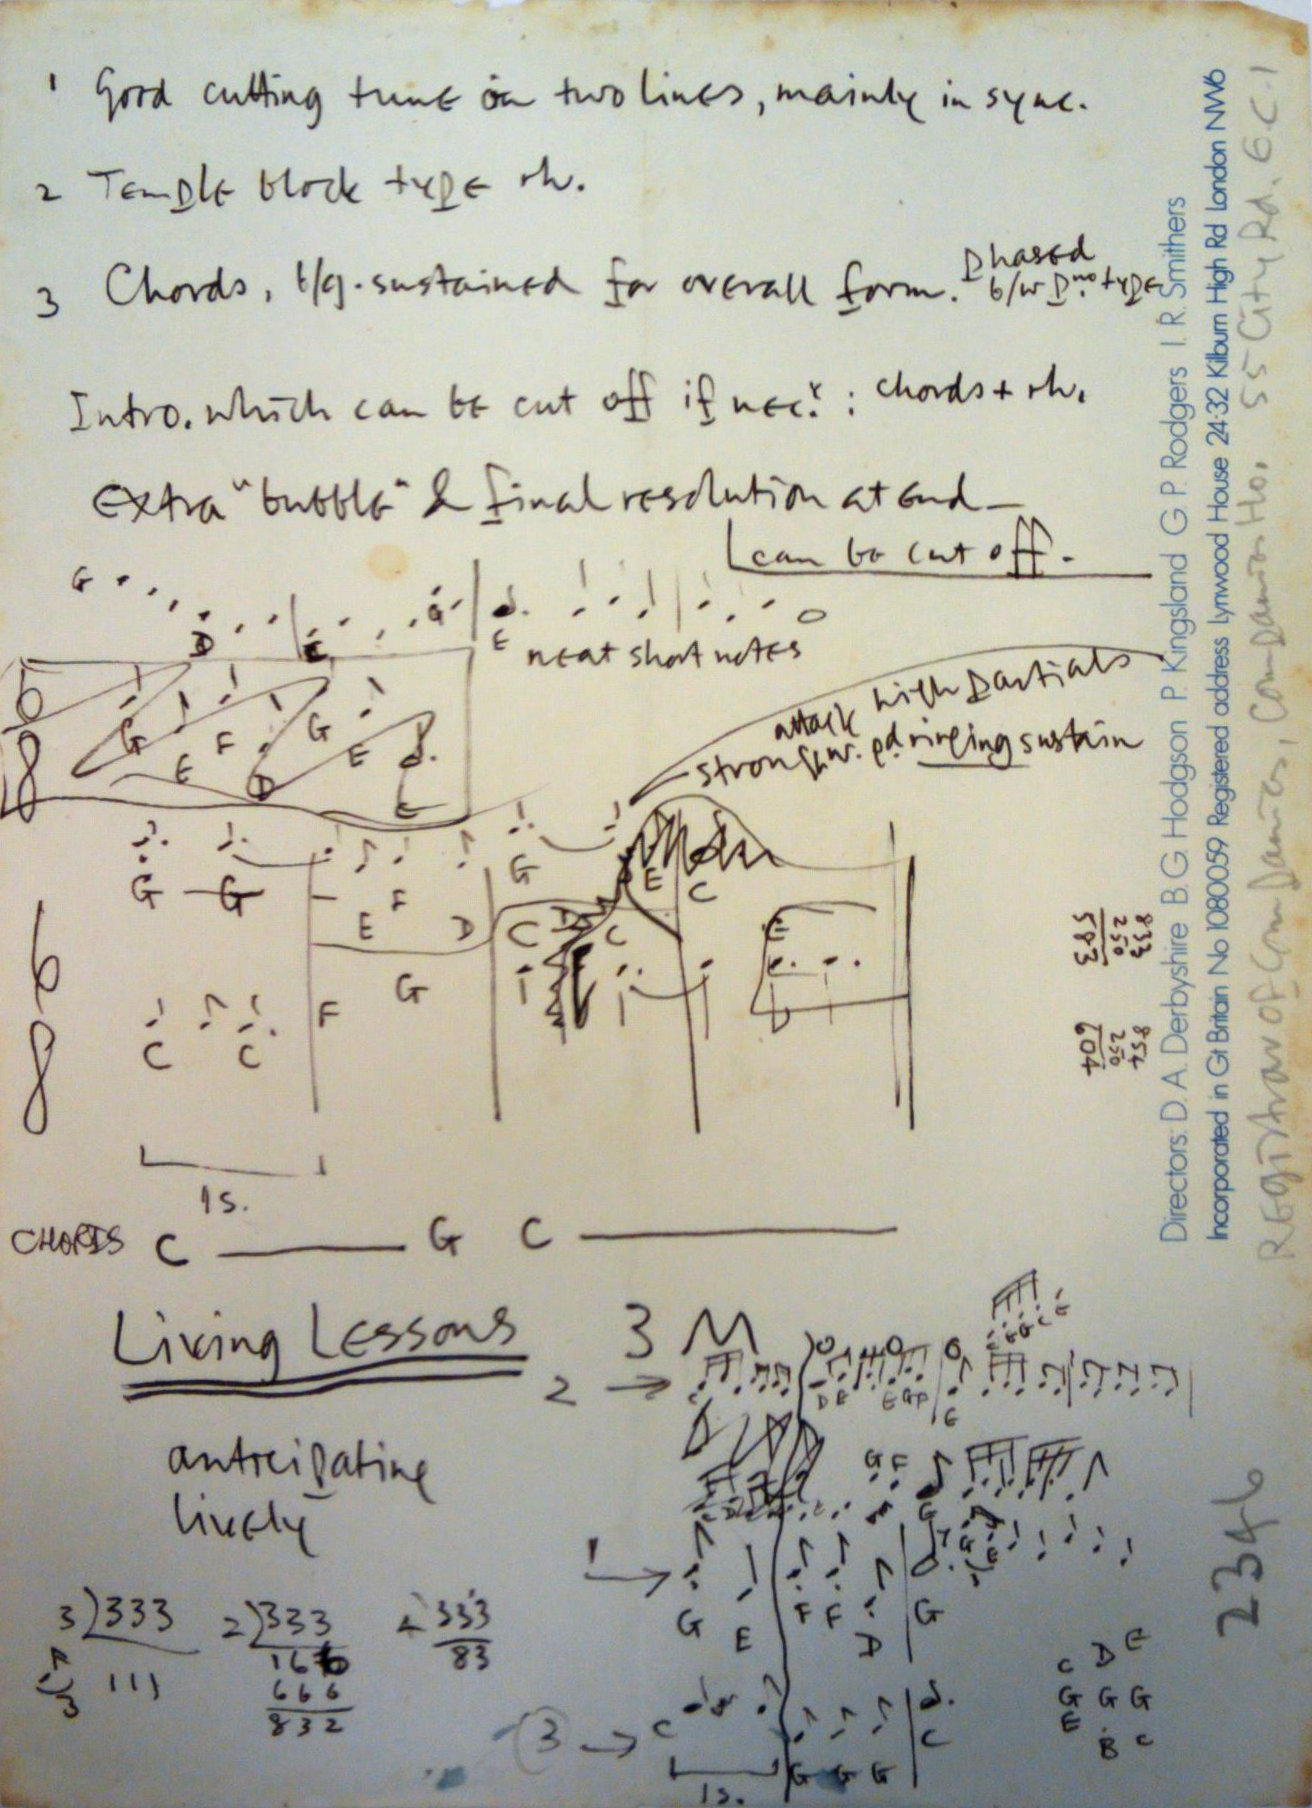 1 Good cutting tune on two lines, mainly in sync.
2 Temple block type rh.
3 Chords, sustained for overall form. Phased
b/w type
Intro. which can be cut off if necy. : chords + rh.
Extra "bubble" & final resolution at end —
can be cut off.
G
D E G E
neat short notes
6
8
G E F D G E E
attack high partials
strong ringing sustain
G G
F
E D
G
C D C
E C
E
6
8
C C
F G
833
250
583
854
250
604
1s.
CHORDS C ——— G C ———
Living Lessons
3 M
2 →
D E E G E
anticipating
lively
G F G
1 →
G E F F D G
3)333
111
2)333
166
666
832
4 333
83
3 → C
G G G C
1s.
C D E
G G G
E B C
Directors: D. A. Derbyshire B. G. Hodgson P. Kingsland G. P. Rodgers I. R. Smithers
Incorporated in Gt Britain No 1080059 Registered address Lynwood House 24-32 Kilburn High Rd London NW6
Registrar of Companies, Companies Ho. 55 City Rd. E.C.1
2346